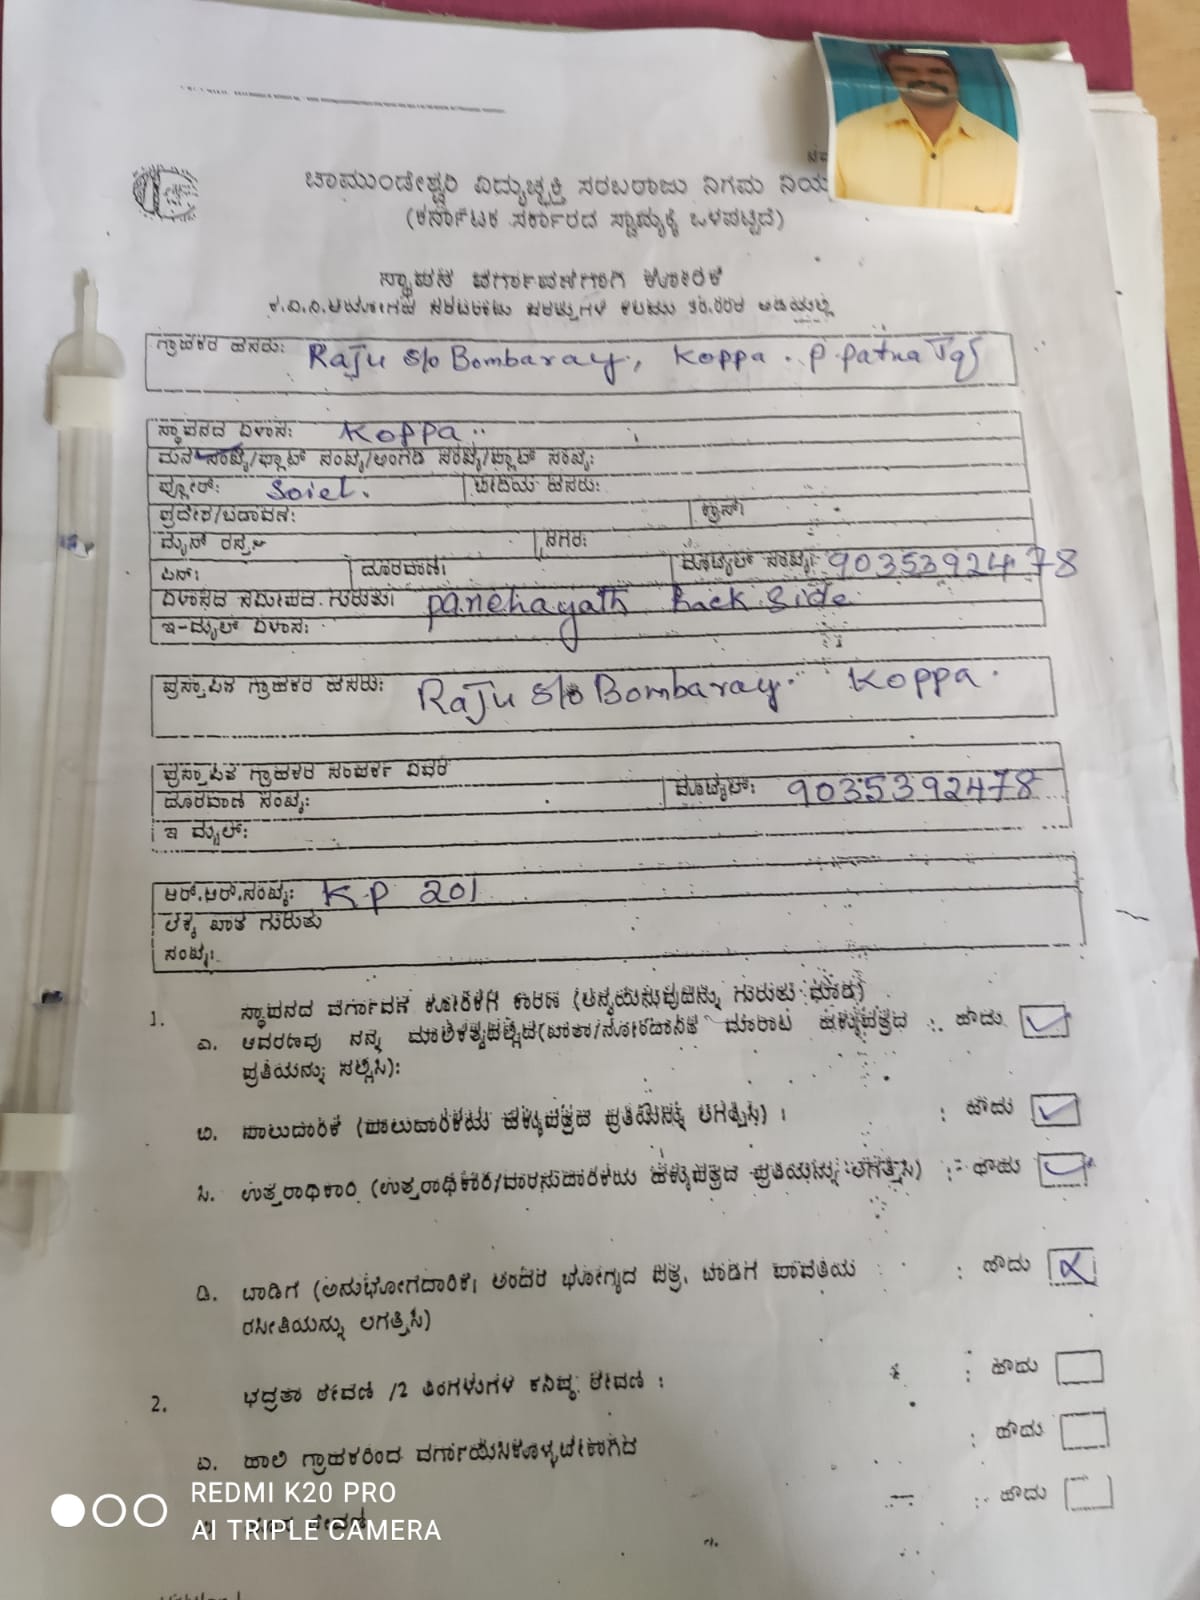 ಚಾಮುಂಡೇಶ್ವರಿ ವಿದ್ಯುಚ್ಛಕ್ತಿ ಸರಬರಾಜು ನಿಗಮ ನಿಯ
(ಕರ್ನಾಟಕ ಸರ್ಕಾರದ ಸ್ವಾಮ್ಯಕ್ಕೆ ಒಳಪಟ್ಟಿದೆ)
ಸ್ಥಾಪನ ವರ್ಗಾವಣೆಗಾಗಿ ಕೋರಿಕೆ
ಗ್ರಾಹಕರ ಹೆಸರು: Raju S/o Bombaray, Koppa. P. Patna Tq
ಸ್ಥಾವನದ ವಿಳಾಸ: Koppa
ಮನೆ ಸಂಖ್ಯೆ/ಫ್ಲಾಟ್ ಸಂಖ್ಯೆ/ಅಂಗಡಿ ಸಂಖ್ಯೆ/ಪ್ಲಾಟ್ ಸಂಖ್ಯೆ:
ಫ್ಲೋರ್: ಬೀದಿಯ ಹೆಸರು:
ಪ್ರದೇಶ/ಬಡಾವಣೆ: ಕ್ರಾಸ್:
ಮೈನ್ ರಸ್ತೆ: ನಗರ:
ಪಿನ್: ದೂರವಾಣಿ: ಮೊಬೈಲ್ ಸಂಖ್ಯೆ: 9035392478
ವಿಳಾಸದ ಸಮೀಪದ ಗುರುತು: Panchayath Back Side
ಇ-ಮೈಲ್ ವಿಳಾಸ:
ಪ್ರಸ್ತಾಪಿತ ಗ್ರಾಹಕರ ಹೆಸರು: Raju S/o Bombaray. Koppa.
ಪ್ರಸ್ತಾಪಿತ ಗ್ರಾಹಕರ ಸಂಪರ್ಕ ವಿವರ
ದೂರವಾಣಿ ಸಂಖ್ಯೆ: ಮೊಬೈಲ್: 9035392478
ಇ ಮೈಲ್:
ಆರ್.ಆರ್.ಸಂಖ್ಯೆ: KP 201
ಲೆಕ್ಕ ಖಾತೆ ಗುರುತು
ಸಂಖ್ಯೆ:
1. ಸ್ಥಾವನದ ವರ್ಗಾವಣೆ ಕೋರಿಕೆಗೆ ಕಾರಣ (ಅನ್ವಯಿಸುವುದನ್ನು ಗುರುತು ಮಾಡಿ)
ಎ. ಆವರಣವು ನನ್ನ ಮಾಲಿಕತ್ವದಲ್ಲಿದೆ(ಖಾತಾ/ನೋಂದಾಯಿತ ಮಾರಾಟ ಹಕ್ಕುಪತ್ರದ : ಹೌದು
ಪ್ರತಿಯನ್ನು ಸಲ್ಲಿಸಿ):
ಬಿ. ಪಾಲುದಾರಿಕೆ (ಪಾಲುದಾರಿಕೆಯ ಹಕ್ಕುಪತ್ರದ ಪ್ರತಿಯನ್ನು ಲಗತ್ತಿಸಿ) : : ಹೌದು
ಸಿ. ಉತ್ತರಾಧಿಕಾರಿ (ಉತ್ತರಾಧಿಕಾರಿ/ವಾರಸುದಾರಿಕೆಯ ಹಕ್ಕುಪತ್ರದ ಪ್ರತಿಯನ್ನು ಲಗತ್ತಿಸಿ) : ಹೌದು
ಡಿ. ಬಾಡಿಗೆ (ಅನುಭೋಗದಾರಿಕೆ, ಅಂದರೆ ಭೋಗ್ಯದ ಪತ್ರ, ಬಾಡಿಗೆ ಪಾವತಿಯ : ಹೌದು
ರಸೀತಿಯನ್ನು ಲಗತ್ತಿಸಿ)
2. ಭದ್ರತಾ ಠೇವಣಿ /2 ತಿಂಗಳುಗಳ ಕನಿಷ್ಠ ಠೇವಣಿ : : ಹೌದು
ಎ. ಹಾಲಿ ಗ್ರಾಹಕರಿಂದ ವರ್ಗಾಯಿಸಿಕೊಳ್ಳಬೇಕಾಗಿದೆ : ಹೌದು
: ಹೌದು
REDMI K20 PRO
AI TRIPLE CAMERA